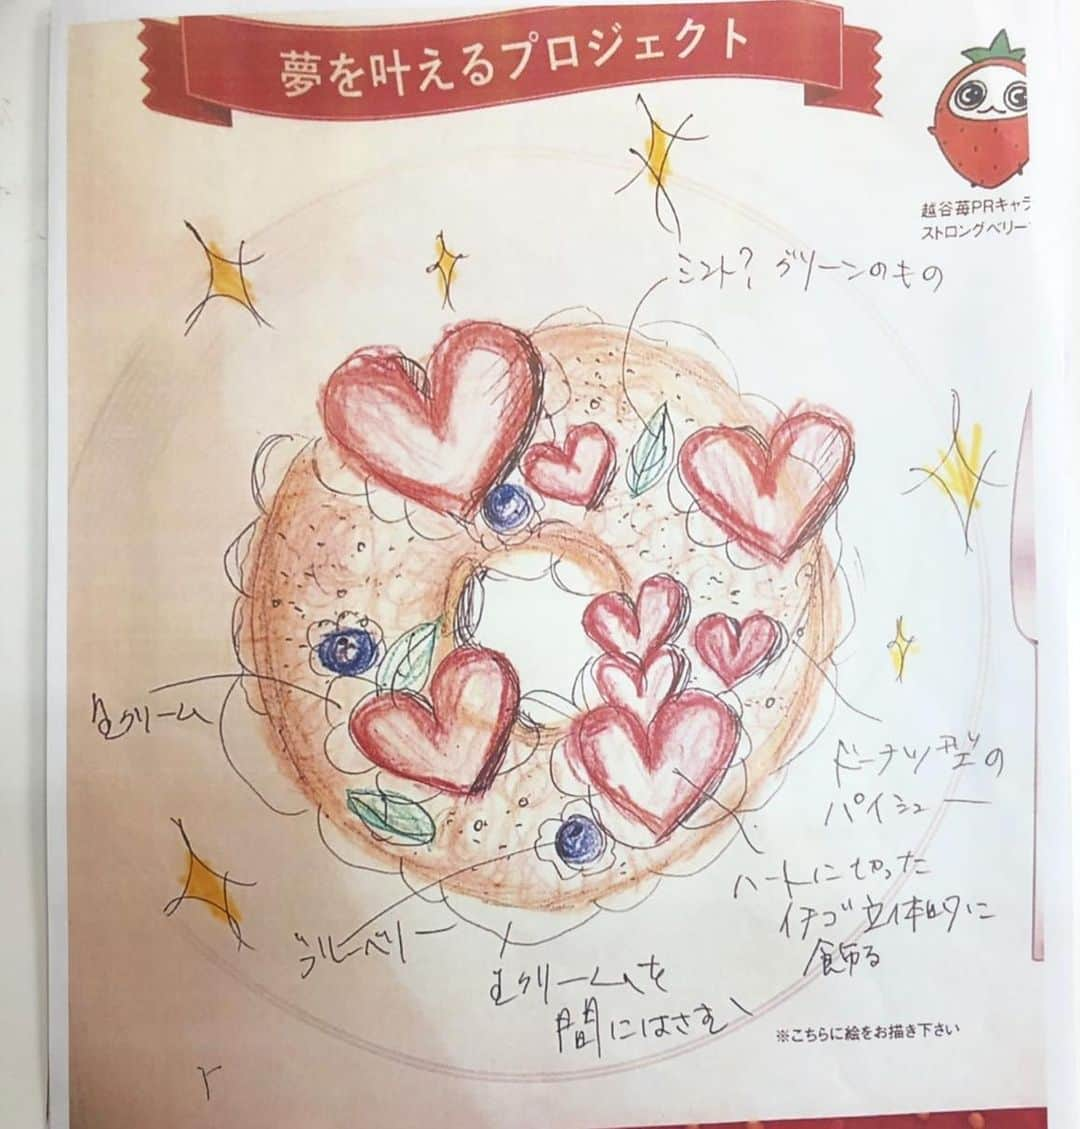 夢を叶えるプロジェクト
越谷苺PRキャラ
ストロングベリー
ミント？グリーンのもの
生クリーム
ドーナツ型の
パイシュー
ハートに切った
イチゴ立体的に
飾る
ブルーベリー
生クリームを
間にはさむ
※こちらに絵をお描き下さい